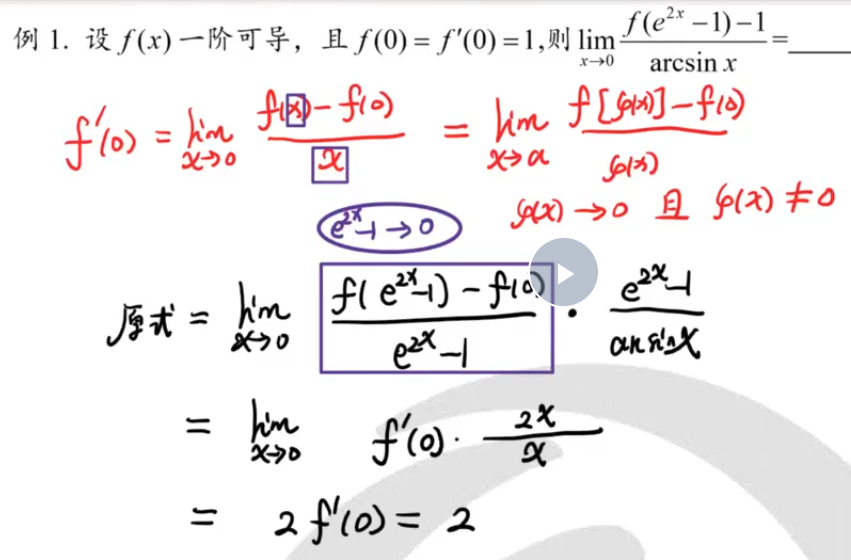 例 1. 设 f(x) 一阶可导，且 f(0) = f′(0) = 1,则 lim_{x→0} \frac{f(e^{2x} −1) −1}{arcsin x} = ____
f′(0) = lim_{x→0} \frac{f(x) − f(0)}{x} = lim_{x→a} \frac{f[φ(x)] − f(0)}{φ(x)}
φ(x) → 0 且 φ(x) ≠ 0
e^{2x}−1 → 0
原式 = lim_{x→0} \frac{f(e^{2x}−1) − f(0)}{e^{2x}−1} · \frac{e^{2x}−1}{arcsin x}
= lim_{x→0} f′(0) · \frac{2x}{x}
= 2 f′(0) = 2